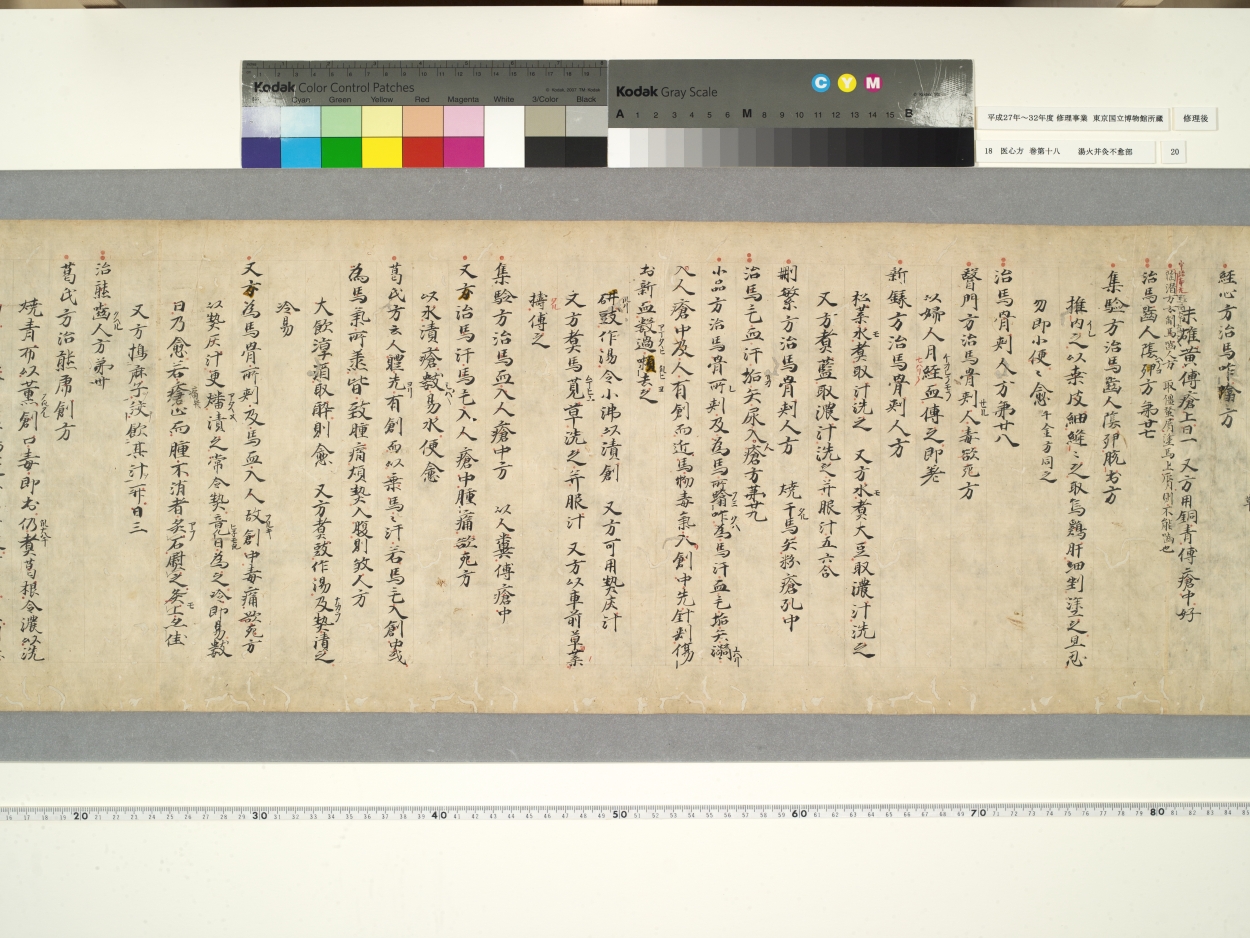 Kodak Color Control Patches
© Kodak, 2007 TM: Kodak
Cyan Green Yellow Red Magenta White 3/Color Black
Kodak Gray Scale
C Y M
A 1 2 3 4 5 6 M 8 9 10 11 12 13 14 15 B
平成27年～32年度 修理事業 東京国立博物館所蔵
修理後
18 医心方 巻第十八 湯火并灸不愈部
20
經心方治馬咋踏方
末雄黄傅瘡上日一 又方用銅青傅瘡中好
治馬嚙人陰卵方第廿七
集驗方治馬嚙人陰卵脱出方
推内之以桒皮細縫之取烏鷄肝細剉塗之且忍
勿即小便之愈 千金方同之
治馬骨刺人方第廿八
醫門方治馬骨刺人毒欲死方
以婦人月經血傅之即差
新錄方治馬骨刺人方
松葉水煑取汁洗之 又方水煑大豆取濃汁洗之
又方煑藍取濃汁洗之并服汁五六合
刪繁方治馬骨刺人方 燒千馬矢粉瘡孔中
治馬毛血汗垢矢尿入人瘡方第廿九
小品方治馬骨所刺及為馬所踏咋為馬汗血毛垢矢溺
入人瘡中及人有創而近馬物毒氣入創中先針刺傷
出新血數過嗍去之
研豉作湯令小沸以漬創 又方可用熱灰汁
又方煑馬莧草洗之并服汁 又方以車前草葉
摶傅之
集驗方治馬血入人瘡中方 以人糞傅瘡中
又方治馬汗馬毛入人瘡中腫痛欲死方
以水漬瘡數易水便愈
葛氏方云人體先有創而以乘馬馬汗若馬毛入創中或
為馬氣所蒸皆致腫痛煩熱入腹則煞人方
大飲淳酒取酔則愈 又方煑豉作湯及熱漬之
冷易
又方為馬骨所刺及馬血入人故創中毒痛欲死方
以熱灰汁更燔漬之常令熱竟日為之冷即易數
日乃愈若瘡止而腫不消者炙石熨之灸上之佳
又方擣麻子絞飲其汁一升日三
治熊嚙人方第卅
葛氏方治熊虎創方
燒青布以薰創口毒即出仍煑葛根令濃以洗
20 30 40 50 60 70 80